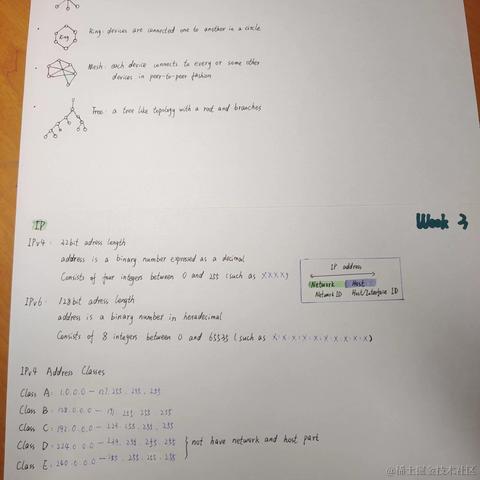 Ring
Ring: devices are connected one to another in a circle
Mesh: each device connects to every or some other
devices in peer-to-peer fashion
Tree: a tree like topology with a root and branches
Week 3
IP
IPv4: 32bit adress length
address is a binary number expressed as a decimal
Consists of four integers between 0 and 255 (such as X.X.X.X)
IP address
Network Host
Network ID Host/Interface ID
IPv6: 128bit adress length
address is a binary number in hexadecimal
Consists of 8 integers between 0 and 65535 (such as X:X:X:X:X:X:X:X)
IPv4 Address Classes
Class A: 1.0.0.0 — 127.255.255.255
Class B: 128.0.0.0 — 191.255.255.255
Class C: 192.0.0.0 — 223.255.255.255
Class D: 224.0.0.0 — 239.255.255.255
not have network and host part
Class E: 240.0.0.0 — 255.255.255.255
@稀土掘金技术社区